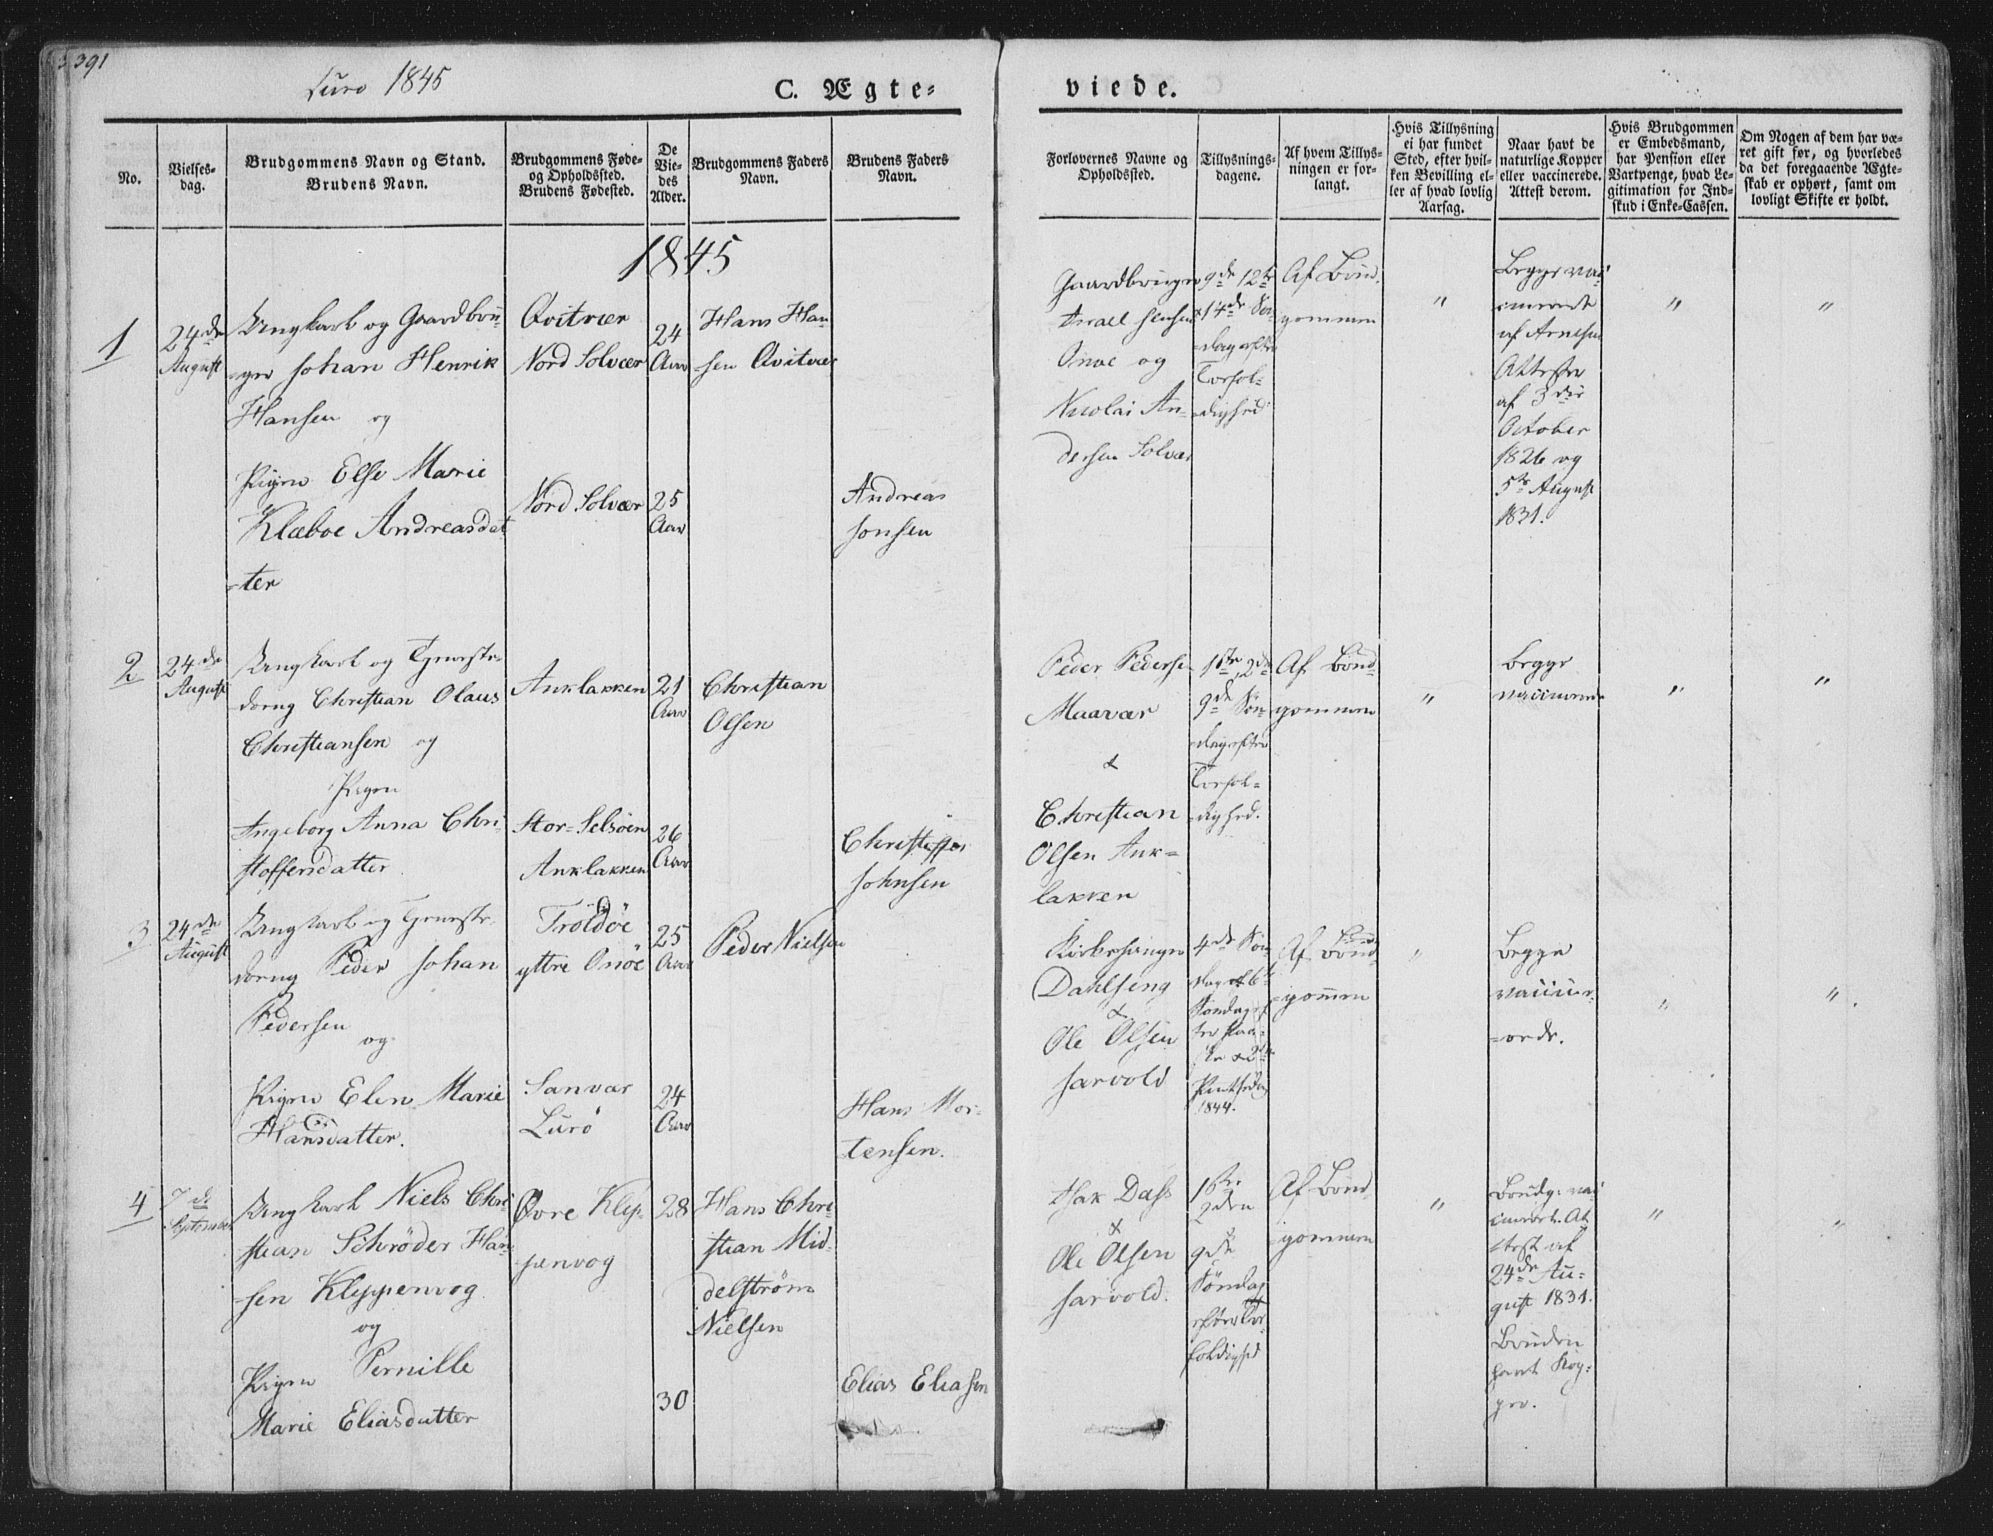 391
Lurö 1845
C. Ægte-
viede.
No.
Vielses-
dag.
Brudgommens Navn og Stand.
Brudens Navn.
Brudgommens Føde-
og Opholdssted.
Brudens Fødested.
De
Vie-
des
Alder.
Brudgommens Faders
Navn.
Brudens Faders
Navn.
Forlovernes Navne og
Opholdssted.
Tillysnings-
dagene.
Af hvem Tillys-
ningen er for-
langt.
Hvis Tillysning
ei har fundet
Sted, efter hvil-
ken Bevilling el-
ler af hvad lovlig
Aarsag.
Naar havt de
naturlige Kopper
eller vaccinerede.
Attest derom.
Hvis Brudgommen
er Embedsmand,
har Pension eller
Vartpenge, hvad Le-
gitimation for Ind-
skud i Enke-Cassen.
Om Nogen af dem har væ-
ret gift før, og hvorledes
da det foregaaende Ægte-
skab er ophørt, samt om
lovligt Skifte er holdt.
1845
1
24de
August
Ungkarl og Gaardbru-
ger Johan Henrik
Hansen og
Pigen Else Marie
Klæboe Andreasdat
-ter
Qvitvær
Nord Solvær
Nord Solvær
24
Aar
25
Aar
Hans Han-
sen Qvitvær
Andreas
Jonsen
Gaardbruger
Israel Jensen
Onøe og
Nicolai An-
dersen Solvær
9de 12te
14de Søn-
dag efter
Trefol-
dighed
Af Brud-
gommen
"
Begge vac-
cinerede
af Arnesen
Attester
af 3die
October
1826 og
5te August
1831.
"
"
2
24de
August
Ungkarl og Tjeneste-
dreng Christian Olaus
Christiansen og
Pigen
Ingeborg Anna Chri-
stoffersdatter
Anklakken
Stor-Selsöen
Anklakken
21
Aar
26
Aar
Christian
Olsen
Christoffer
Johnsen
Peder Pedersen
Maavær
&
Christian
Olsen Ank-
lakken
1ste 2de
9de Søn-
dag efter
Trefol-
dighed.
Af Brud-
gommen
"
Begge
vaccinerede
"
"
3
24de
August
Ungkarl og Tjeneste-
dreng Peder Johan
Pedersen
og
Pigen Elen Marie
Hansdatter.
Troldöe
yttre Onöe
Sanvær
Lurö
25
Aar
24
Aar
Peder Nielsen
Hans Mor-
tensen.
Kirkesanger
Dahlseng
&
Ole Olsen
Jarvold
4de Søn-
dag 6te
Søndag ef-
ter Paa-
ske & 2den
Pintsedag
1844.
Af Brud-
gommen
"
Begge
vacciner-
-ede.
"
"
4
7de
September
Ungkarl Niels Chri-
stian Schrøder Han-
sen Kleppenvog
og
Pigen Pernille
Marie Eliasdatter
Øvre Klep-
penvog
28
30
Hans Chri-
stian Mid-
delström
Nielsen
Elias Eliasen
Isak Dass
&
Ole Olsen
Jarvold.
1ste
2den
9de
Søndag
efter Tre-
foldighed
Af Brud-
gommen
"
Brudg. vac-
cineret. At-
test af
24de Au-
gust 1831.
Bruden
havt Kop-
per.
"
"